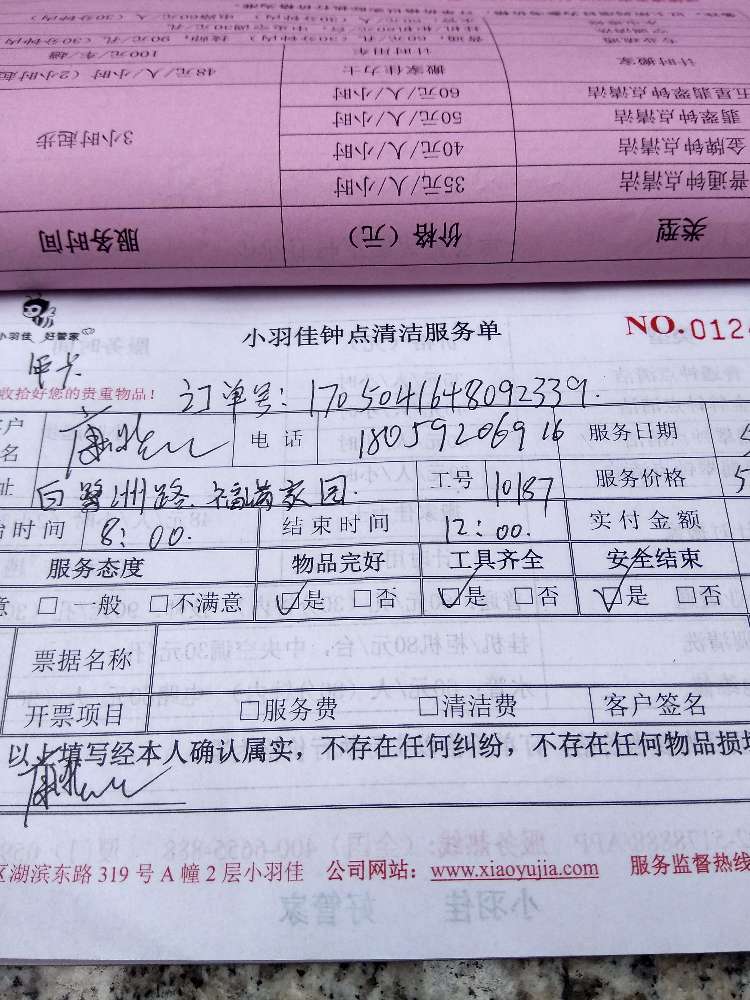 类型 价格（元） 服务时间
普通钟点清洁 35元/人/小时 3小时起步
金牌钟点清洁 40元/人/小时
翡翠钟点清洁 50元/人/小时
五星翡翠钟点清洁 60元/人/小时
搬家佳力士 48元/人/小时（2小时起
计时搬家 计时用车 100元/车/趟
小羽佳 好管家
小羽佳钟点清洁服务单 NO.0124
收拾好您的贵重物品！ 订单号：1705041648092339.
户 电话 18059206916 服务日期
名
址 白鹭洲路.福满家园 工号 10187 服务价格 5
时间 8：00. 结束时间 12：00. 实付金额
服务态度 物品完好 工具齐全 安全结束
意 □ 一般 □不满意 ☑是 □否 ☑是 □否 ☑是 □否
票据名称
开票项目 □服务费 □清洁费 客户签名
以上填写经本人确认属实，不存在任何纠纷，不存在任何物品损坏
区湖滨东路 319 号 A 幢 2 层小羽佳 公司网站：www.xiaoyujia.com 服务监督热线
小羽佳 好管家